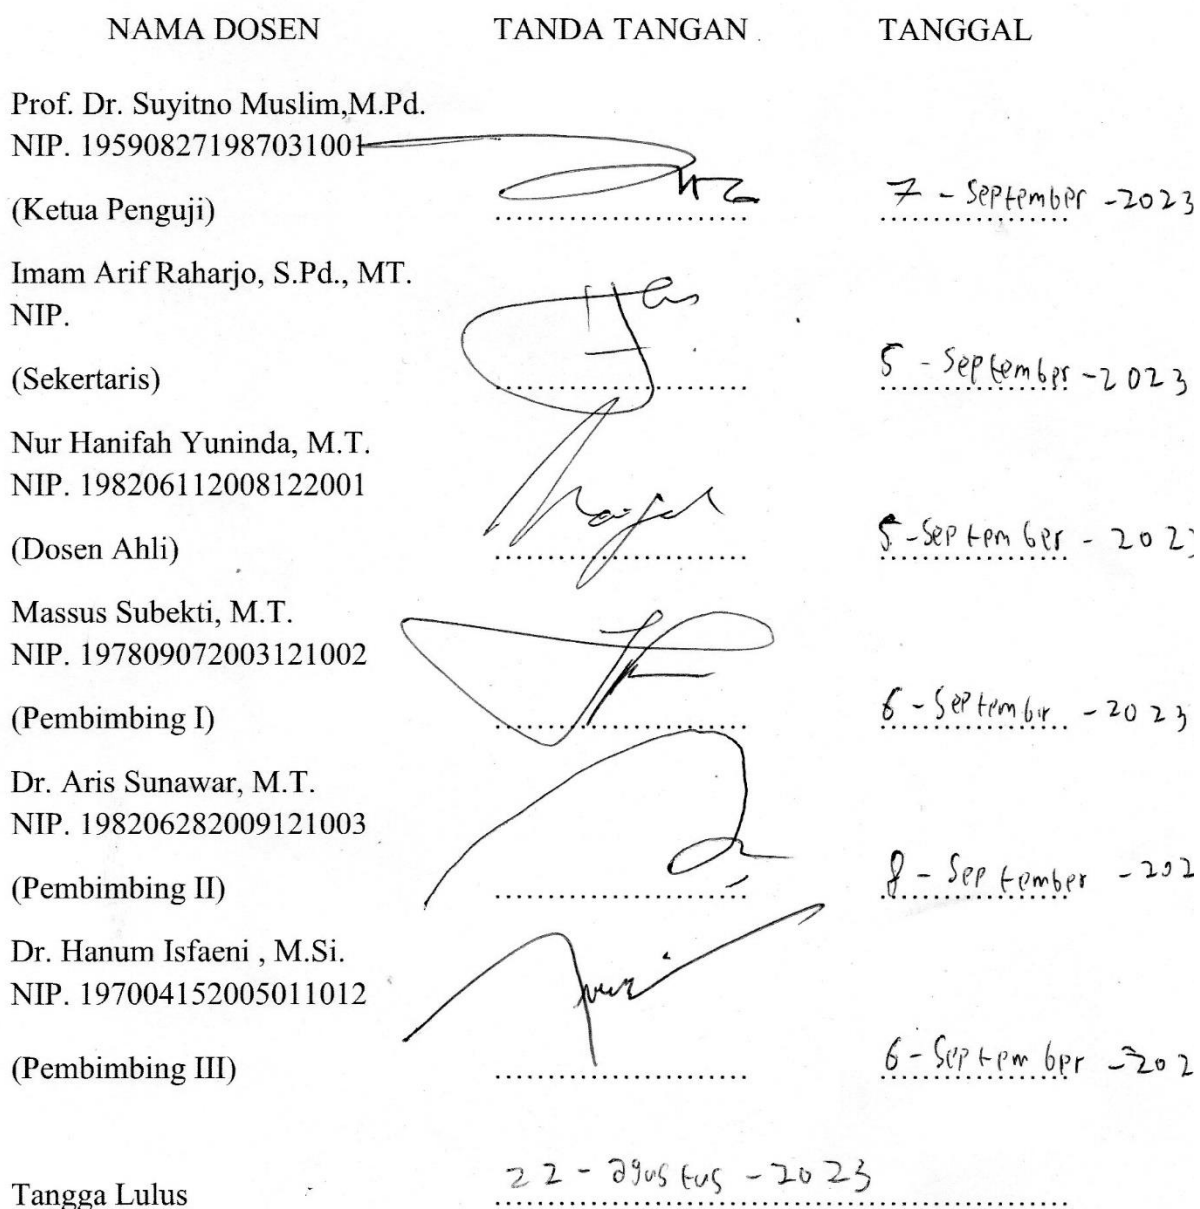 NAMA DOSEN TANDA TANGAN TANGGAL
Prof. Dr. Suyitno Muslim,M.Pd.
NIP. 195908271987031001
(Ketua Penguji) ........................ 7 - September - 2023
Imam Arif Raharjo, S.Pd., MT.
NIP.
(Sekertaris) ........................ 5 - September - 2023
Nur Hanifah Yuninda, M.T.
NIP. 198206112008122001
(Dosen Ahli) ........................ 5 - September - 2023
Massus Subekti, M.T.
NIP. 197809072003121002
(Pembimbing I) ........................ 6 - September - 2023
Dr. Aris Sunawar, M.T.
NIP. 198206282009121003
(Pembimbing II) ........................ 8 - September - 202
Dr. Hanum Isfaeni , M.Si.
NIP. 197004152005011012
(Pembimbing III) ........................ 6 - September - 202
Tangga Lulus 22 - agustus - 2023